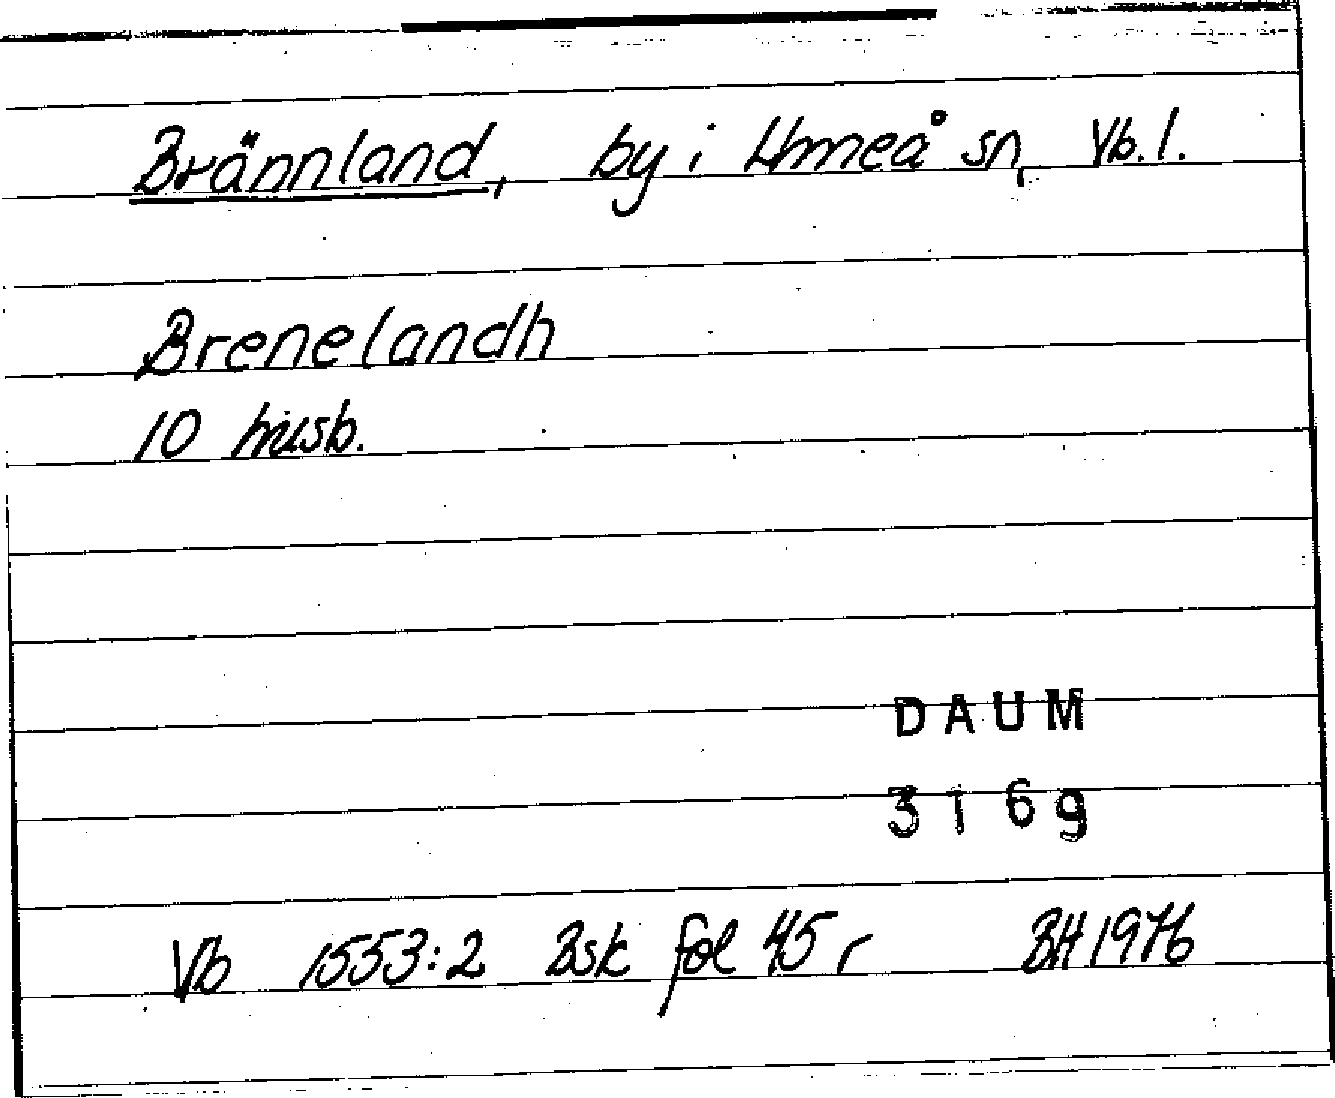 Brännland, by i Umeå sn, Vb. l.
Brenelandh
10 husb.
DAUM
3169
Vb 1553:2 Bsk fol 45 r BH 1976